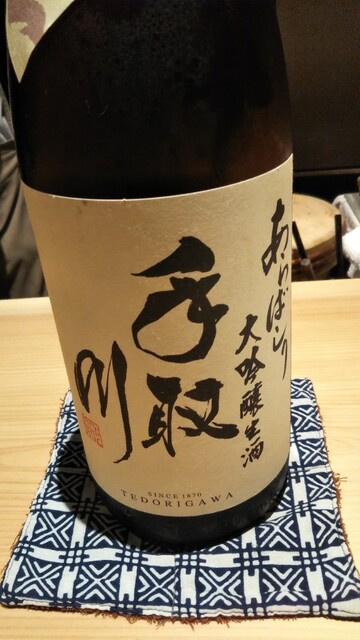 あらばしり
大吟醸生酒
手取
川
SINCE 1870
TEDORIGAWA